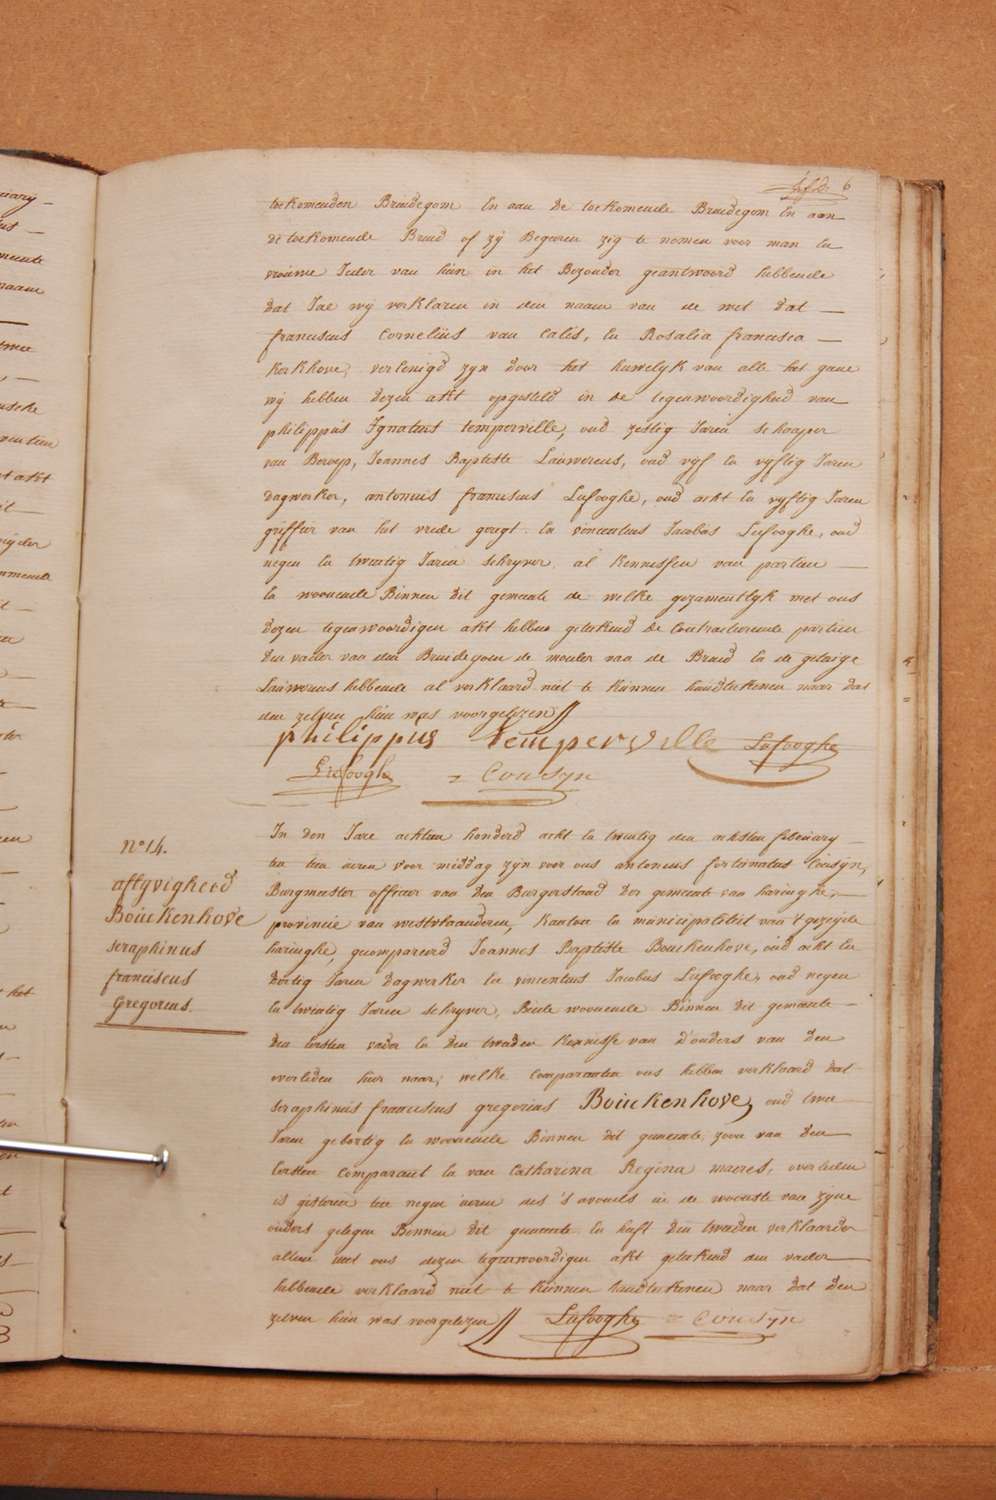 6
toekomenden Bruidegom En aan de toekomende Bruidegom En aan
de toekomende Bruid of zÿ Begeeren zig te nemen voor man En
vrouwe Ieder van hun in het Bezonder geantwoord hebbende
dat Iae wÿ verklaren in den naam van de wet dat —
franciscus Cornelius van Calis, En Rosalia francisca —
Kerkhove, vereenigd zÿn door het huwelÿk van alle het gone
wÿ hebben dezen akt opgesteld in de tegenwoordigheid van
philippus Ignatius temperville, oud zestig Iaren schaper
van Beroep, Ioannes Baptiste Lauwereus, oud vÿf En vÿftig Iaren
dagwerker, antonius franciscus Lefooghe, oud acht En vÿftig Iaren
griffier van het vrede geregt. En vincentius Iacobus Lefooghe, oud
negen En twintig Iaren schryver, al kennissen van partien —
En woonende Binnen dit gemeente de welke gezamentlÿk met ons
dezen tegenwoordigen akt hebben geteekend de Contracteerende partien
den vader van den Bruidegom de moeder van de Bruid En de getuige
Lauwereus hebbende al verklaard niet te kunnen handteekenen naar dat
den zelven hun was voorgelezen //
philippus temperville Lefooghe
Lefooghe = Cousyn
N° 14.
aflyvigheid
Bouckenhove
seraphinus
franciscus
Gregorius.
In den Iare achtien honderd acht En twintig den achsten februarÿ —
ten tien ueren voor middag zÿn voor ons antonius fortunatus Cousÿn,
Burgmeester officier van den Burgerstand der gemeente van haringhe, —
provincie van westvlaanderen, Kanton En municipaliteit van 't gezeÿde
haringhe, gecompareerd Ioannes Baptiste Bouckenhove, oud acht En
dertig Iaren dagwerker En vincentius Iacobus Lefooghe, oud negen
En twintig Iaren schryver, Beide woonende Binnen dit gemeente —
den Eersten vader En den tweeden Kennisse van d'ouders van den
overleden hier naar; welke comparanten ons hebben verklaard dat
seraphinus franciscus gregorius Bouckenhove, oud twee —
Iaren gebortig En woonende Binnen dit gemeente, zoon van den —
Eersten comparant En van Catharina Regina maeres, overleden
is gisteren ten negen ueren des 's avonds in de wooniste van zÿne
ouders gelegen Binnen dit gemeente. En heeft den tweeden verklaarder
alleen met ons dezen tegenwoordigen akt geteekend den vader
hebbende verklaard niet te kunnen handteekenen naar dat den
zelven hun was voorgelezen // Lefooghe = Cousÿn